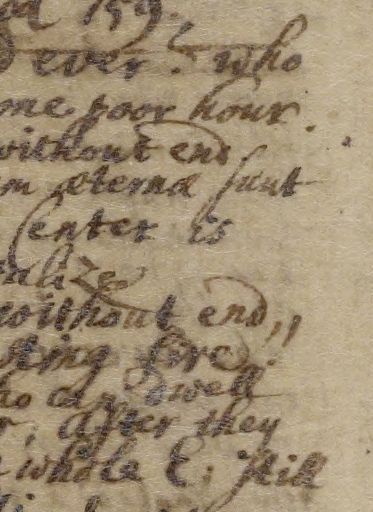 159.
ever? who
one poor hour.
without end
æternæ sunt
senter is
alize
without end,,
sting fire?
who can dwell
r, after they
whole E; still